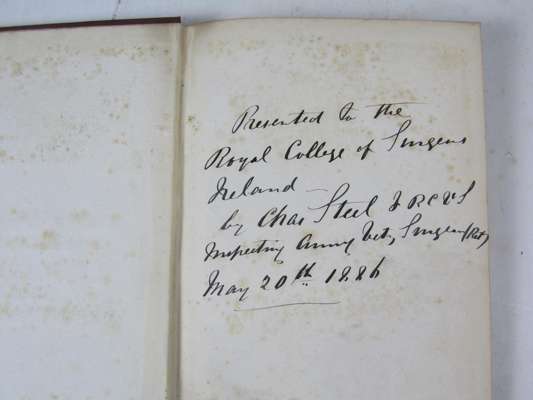 Presented to the
Royal College of Surgeons
Ireland —
by Chas Steel F R C V S
Inspecting Army Vety Surgeon (Ret)
May 20th 1886